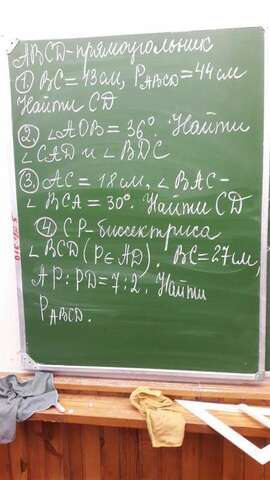 ABCD-прямоугольник
① BC=13см, P_ABCD=44см
Найти CD
② ∠AOB=36°. Найти
∠CAD и ∠BDC
③ AC=18см, ∠BAC-
∠BCA=30°. Найти CD
④ CP-биссектриса
∠BCD (P∈AD). BC=27см,
AP:PD=7:2. Найти
P_ABCD.